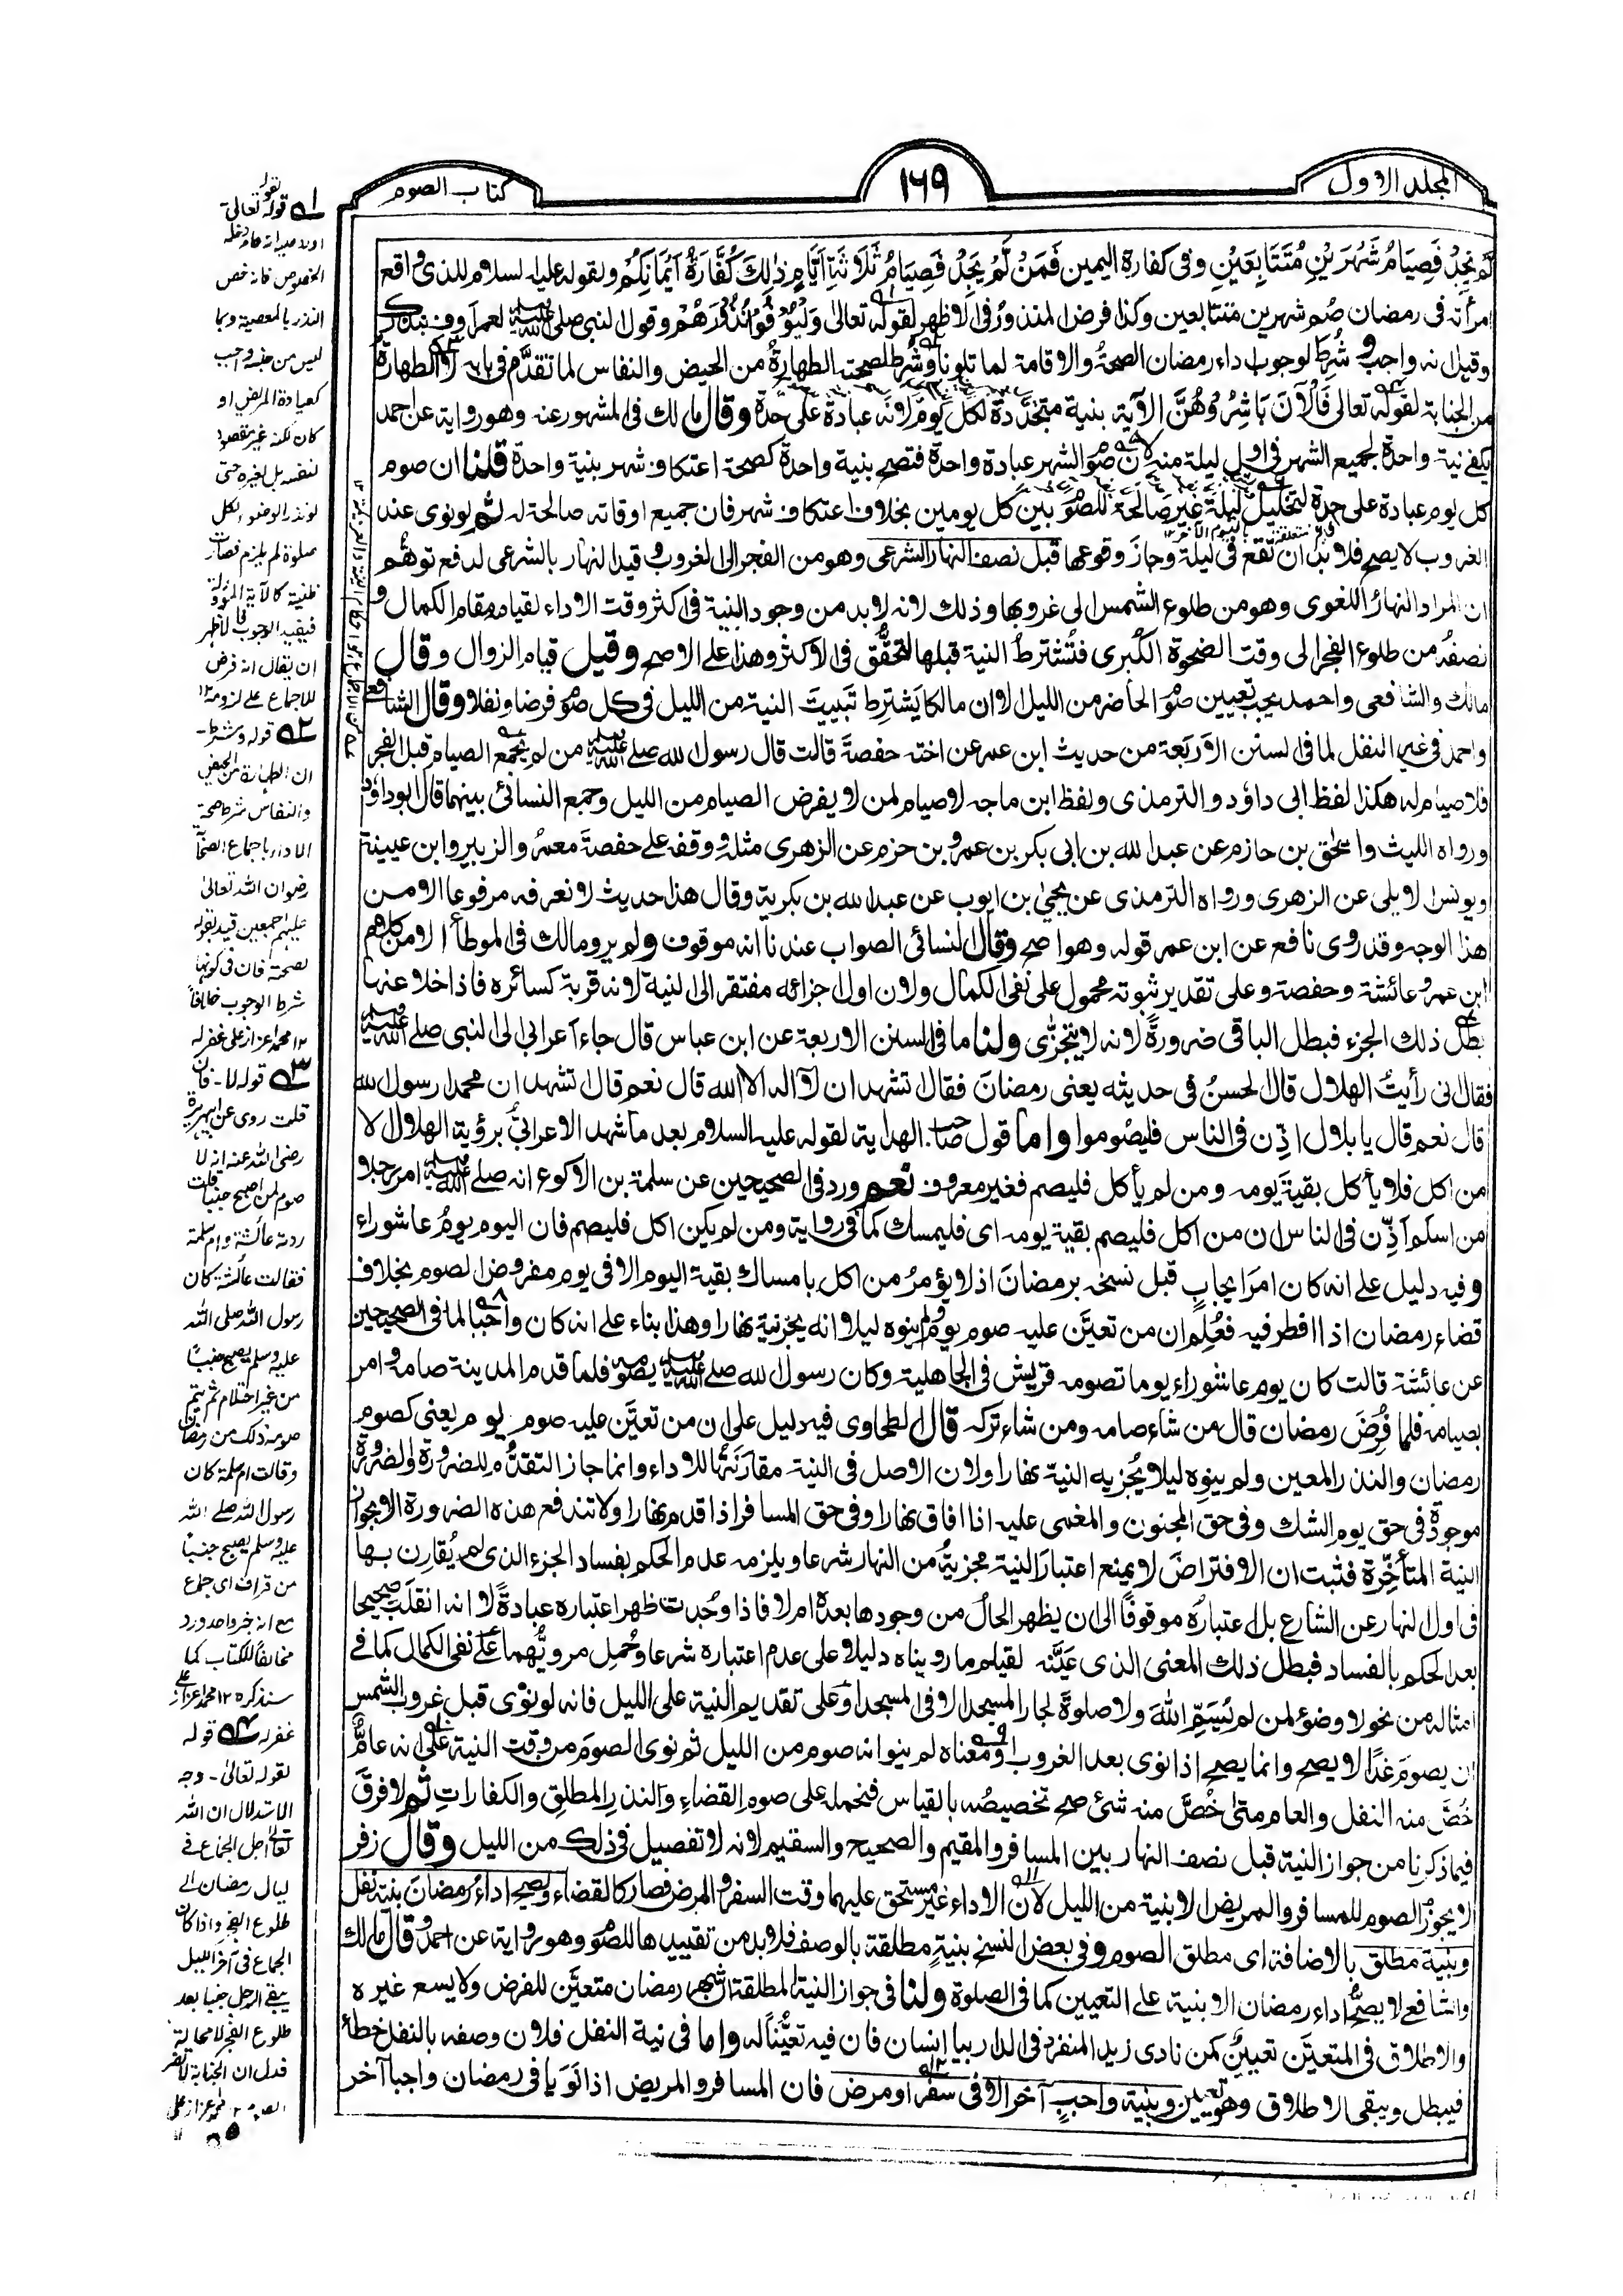 المجلد الاول
١٦٩
كتاب الصوم
لَّمْ يَجِدْ فَصِيَامُ شَهْرَيْنِ مُتَتَابِعَيْنِ وفى كفارة اليمين فَمَنْ لَّمْ يَجِدْ فَصِيَامُ ثَلَاثَةِ اَيَّامٍ ذٰلِكَ كَفَّارَةُ اَيْمَانِكُمْ ولقوله عليه السلام للذى واقع
امرأته فى رمضان صُم شهرين متتابعين وكذا فرض المنذورُ فى الاظهر لقوله تعالىٰ وَلْيُوْفُوْا نُذُوْرَهُمْ وقول النبى صلى الله عليه وسلم لعمر اَوفِ بنذرك
وقيل انه واجب و شُرِط لوجوب اداء رمضان الصحةُ والاقامة لما تلونا وشُرِط لصحته الطهارةُ من الحيض والنفاس لما تقدَّم فى بابه لا الطهارةُ
من الجنابة لقوله تعالى فَالْآنَ بَاشِرُوْهُنَّ الآية بنية متجَدِّدة لكل يوم لانه عبادة على حِدة وقال مالك فى المشهور عنه وهو رواية عن احمد
يكفى نية واحدة لجميع الشهر فى اول ليلة منه لان صوم الشهر عبادة واحدة فتصح بنية واحدة كصحة اعتكاف شهر بنية واحدة قلنا ان صوم
كل يوم عبادة على حدة لتخليل ليلة غير صالحة للصوم بين كل يومين بخلاف اعتكاف شهر فان جميع اوقاته صالحة له ثم لو نوى عند
الغروب لا يصح فلا بد ان تقع فى ليلة وجاز وقوعها قبل نصف النهار الشرعى وهو من الفجر الى الغروب قيد النهار بالشرعى لدفع توهُّم
ان المراد النهارُ اللغوى وهو من طلوع الشمس الى غروبها وذلك لانه لابد من وجود النية فى اكثر وقت الاداء لقيامه مقام الكمال و
نصفُه من طلوع الفجر الى وقت الضحوة الكُبرى فتُشترطُ النية قبلها لتحقُّق فى الاكثر وهذا على الاصح وقيل قيام الزوال وقال
مالك والشافعى واحمد يجب تعيين صوم الحاضر من الليل الا ان مالكا يَشترِط تَبييتَ النية من الليل فى كل صوم فرضا ونفلا وقال الشافعى
واحمد فى غير النفل لما فى السنن الاربَعة من حديث ابن عمر عن اخته حفصة قالت قال رسول الله صلى الله عليه وسلم من لم يجمع الصيام قبل الفجر
فلا صيام له هكذا لفظ ابى داؤد والترمذى ولفظ ابن ماجه لا صيام لمن لا يفرض الصيام من الليل وجمع النسائى بينهما قال ابوداؤد
ورواه الليث واسحٰق بن حازم عن عبد الله بن ابى بكر بن عمرو بن حزم عن الزهرى مثله ووقفه على حفصة معمرُ والزبير وابن عيينة
ويونس الايلى عن الزهرى ورواه الترمذى عن يحيىٰ بن ايوب عن عبد الله بن بكر به وقال هذا حديث لا نعرفه مرفوعا الا من
هذا الوجه وقد روى نافع عن ابن عمر قوله وهو اصح وقال النسائى الصواب عندنا انه موقوف ولم يرو مالك فى الموطأ الا من كلام
ابن عمر وعائشة وحفصة وعلى تقدير ثبوته محمول على نفى الكمال ولان اول اجزائه مفتقر الى النية لانه قربة كسائره فاذا خلا عنها
بطل ذلك الجزء فبطل الباقى ضرورةً لانه لا يتجزّى ولنا ما فى السنن الاربعة عن ابن عباس قال جاء اعرابى الى النبى صلى الله عليه وسلم
فقال انى رأيتُ الهلال قال الحسنُ فى حديثه يعنى رمضانَ فقال اتشهد ان لا اله الا الله قال نعم قال اتشهد ان محمدا رسول الله
قال نعم قال يا بلال اذِّن فى الناس فليصُوموا واما قول صاحب الهداية لقوله عليه السلام بعد ما شهد الاعرابىُّ برؤية الهلال الا
من اكل فلا يأكل بقيةَ يومه ومن لم يأكل فليصم فغير معروف نعم ورد فى الصحيحين عن سلمة بن الاكوع انه صلى الله عليه وسلم امر رجلا
من اسلم اَذِّن فى الناس ان من اكل فليصم بقية يومه اى فليمسك كما فى رواية ومن لم يكن اكل فليصم فان اليوم يومُ عاشوراء
وفيه دليل على انه كان امرَ ايجابٍ قبل نسخه برمضانَ اذ لا يؤمرُ من اكل بامساك بقية اليوم الا فى يوم مفروض الصوم بخلاف
قضاء رمضان اذا افطر فيه فعُلِم ان من تعيَّن عليه صوم يوم ولم ينوه ليلا انه يجزئه نهارا وهذا بناء على انه كان واجبا لما فى الصحيحين
عن عائشة قالت كان يوم عاشوراء يوما تصومه قريش فى الجاهلية وكان رسول الله صلى الله عليه وسلم يصومه فلما قدم المدينة صامه وامر
بصيامه فلما فُرِضَ رمضان قال من شاء صامه ومن شاء تركه قال الطحاوى فيه دليل على ان من تعيَّن عليه صوم يوم يعنى كصوم
رمضان والنذر المعين ولم ينوه ليلا يُجزيه النية نهارا ولان الاصل فى النية مقارَنتُها للاداء وانما جاز التقدُّم للضرورة والضرورة
موجودةُ فى حق يوم الشك وفى حق المجنون والمغمى عليه اذا افاق نهارا وفى حق المسافر اذا قدم نهارا ولا تندفع هذه الضرورة الا بجواز
النية المتأخِّرة فثبت ان الافتراضَ لا يمنع اعتبارَ النية مجزيةً من النهار شرعا ويلزمه عدم الحكم بفساد الجزء الذى لم يُقارِن بها
فى اول النهار عن الشارع بل اعتبارُه موقوفًا الى ان يظهر الحالُ من وجودها بعده ام لا فاذا وجُدت ظهر اعتباره عبادةً لا انه انقلبَ صحيحا
بعد الحكم بالفساد فبطل ذلك المعنى الذى عَيَّنه لقيام ما رويناه دليلا على عدم اعتباره شرعا وحُمِل مرويُّهما على نفى الكمال كما فى
امثاله من نحو لا وضوءَ لمن لم يُسَمِّ اللهَ ولا صلوةَ لجار المسجد الا فى المسجد او على تقديم النية على الليل فانه لو نوٰى قبل غروب الشمس
ان يصومَ غدًا لا يصح وانما يصح اذا نوى بعد الغروب او معناه لم ينو انه صوم من الليل ثم نوى الصومَ من وقت النية على انه عامٌّ
خُصَّ منه النفل والعام متىٰ خُصَّ منه شئ صح تخصيصُه بالقياس فنحمله على صوم القضاءِ والنذرِ المطلقِ والكفاراتِ ثم لا فرقَ
فيما ذكرنا من جواز النية قبل نصف النهار بين المسافر والمقيم والصحيح والسقيم لانه لا تفصيل فى ذلك من الليل وقال زفر
لا يجوزُ الصوم للمسافر والمريض الا بنية من الليل لان الاداءَ غير مستحق عليهما وقت السفر والمرض فصار كالقضاء ويصح اداءُ رمضانَ بنية نفل
وبنية مطلق بالاضافة اى مطلق الصوم وفى بعض النسخ بنيةٍ مطلقة بالوصف فلا بد من تقييدها للصوم وهو رواية عن احمد وقال مالك
والشافعى لا يصحُّ اداء رمضان الا بنية على التعيين كما فى الصلوة ولنا فى جواز النية المطلقة ان شهر رمضان متعيَّن للفرض ولا يسع غيره
والاطلاق فى المتعيَّن تعيينٌ كمن نادى زيد المنفرد فى الدار بيا إنسان فان فيه تعيُّنًا له واما فى نية النفل فلان وصفه بالنفل خطأ
فيبطل ويبقى الاطلاق وهو تعيين وبنية واجبٍ آخر الا فى سفر او مرض فان المسافر والمريض اذا نَوَيا فى رمضان واجبا آخر
قوله تعالىٰ
الخصوص فانه خص
النذر بالمعصية وبما
ليس من جنسه واجب
كعيادة المريض او
كان لكنه غير مقصود
لنفسه بل لغيره حتى
لو نذر الوضوء لكل
صلوة لم يلزم فصارت
ظنية كالآية المؤولة
فيفيد الوجوب فالاظهر
ان يقال انه فرض
للاجماع على لزومه ١٢
قوله وشرط-
ان الطهارة من الحيض
والنفاس شرط صحة
الاداء باجماع الصحابة
رضوان الله تعالىٰ
عليهم اجمعين قيد بقوله
لصحته فان فى كونها
شرط الوجوب خلافاً
١٢ محمد اعزاز على غفر له
قوله لا - فان
قلت روى عن ابى هريرة
رضى الله عنه انه لا
صوم لمن اصبح جنبا قلت
ردته عائشة وام سلمة
فقالت عائشة كان
رسول الله صلى الله
عليه وسلم يصبح جنبًا
من غير احتلام ثم يتم
صومه ذلك من رمضان
وقالت ام سلمة كان
رسول الله صلى الله
عليه وسلم يصبح جنبًا
من قراف اى جماع
مع انه خبر واحد ورد
مخالفًا للكتاب كما
سنذكره ١٢ محمد اعزاز على
غفر له قوله
لقوله تعالىٰ - وجه
الاستدلال ان الله
تعالىٰ احل الجماع فى
ليال رمضان الى
طلوع الفجر واذا كان
الجماع فى آخر الليل
يبقى الرجل جنبا بعد
طلوع الفجر لا محالة
فدل ان الجنابة لا تضر
الصوم ١٢ محمد اعزاز على